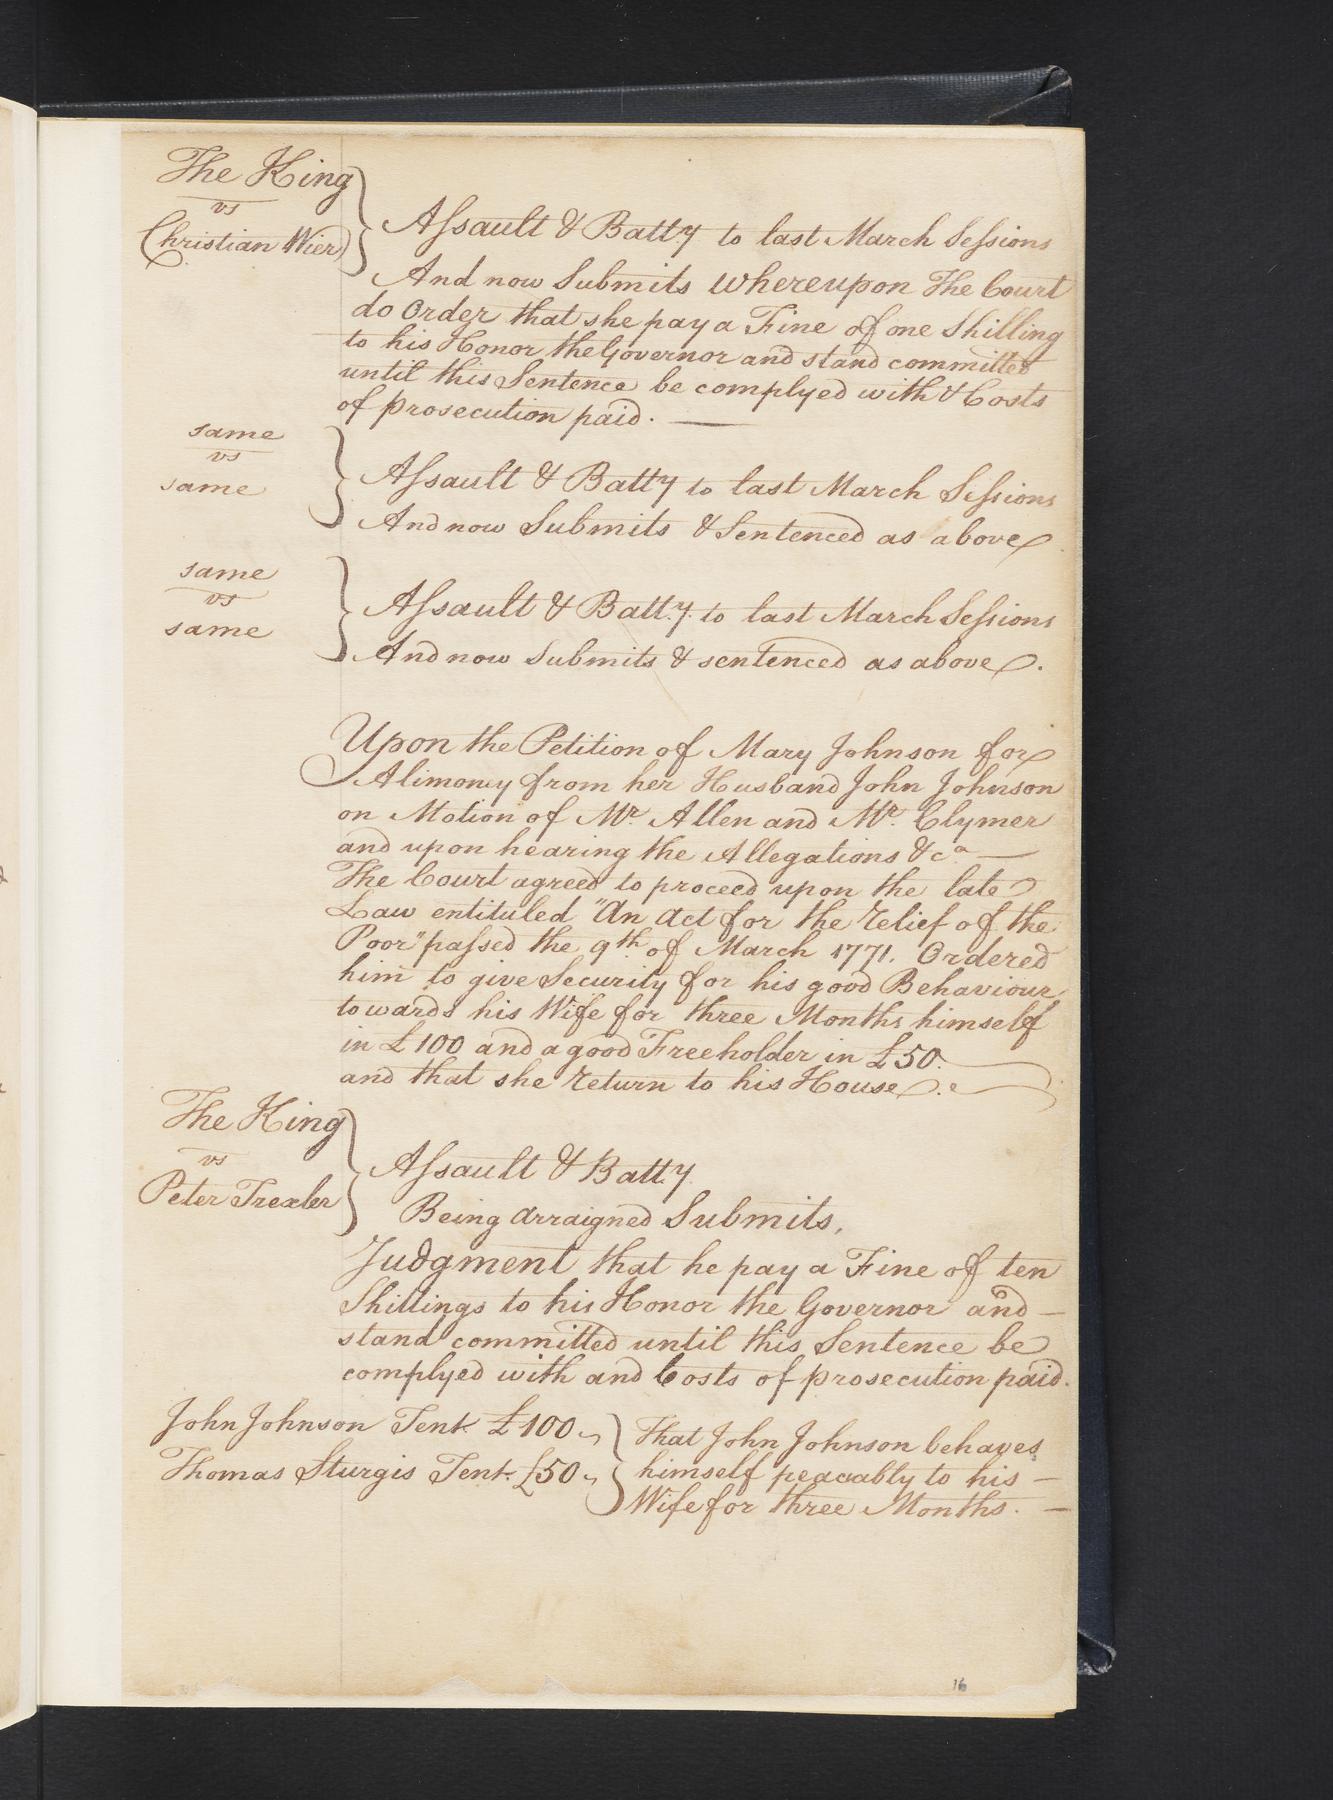 The King
vs
Christian Wier
Assault & Batty to last March Sessions
And now Submits whereupon The Court
do Order that she pay a Fine of one Shilling
to his Honor the Governor and stand committed
until this Sentence be complyed with & Costs
of prosecution paid.
same
vs
same
Assault & Batty to last March Sessions
And now Submits & Sentenced as above
same
vs
same
Assault & Batt.y. to last March Sessions
And now Submits & sentenced as above.
Upon the Petition of Mary Johnson for
Alimoney from her Husband John Johnson
on Motion of Mr. Allen and Mr. Clymer
and upon hearing the Allegations &ca.
The Court agreed to proceed upon the late
Law entituled "An Act for the relief of the
Poor" passed the 9th. of March 1771. Ordered
him to give Security for his good Behaviour
towards his Wife for three Months himself
in £100 and a good Freeholder in £50.
and that she return to his House.
The King
vs
Peter Trexler
Assault & Batt.y.
Being arraigned Submits.
Judgment that he pay a Fine of ten
Shillings to his Honor the Governor and
stand committed until this Sentence be
complyed with and Costs of prosecution paid.
John Johnson Tent. £100
Thomas Sturgis Tent. £50
That John Johnson behaves
himself peaceably to his
Wife for three Months.
16